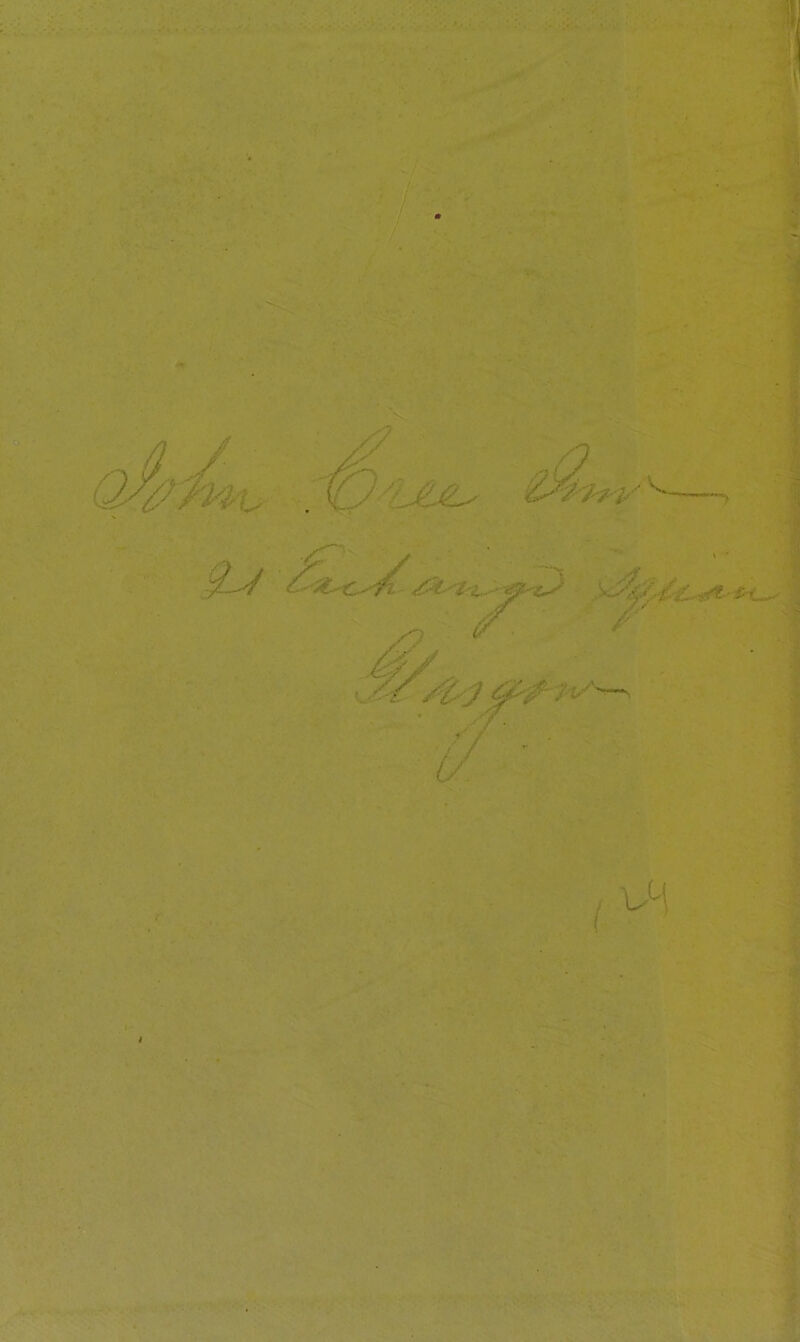 John Cree Junr
21 Exchange Square
Glasgow